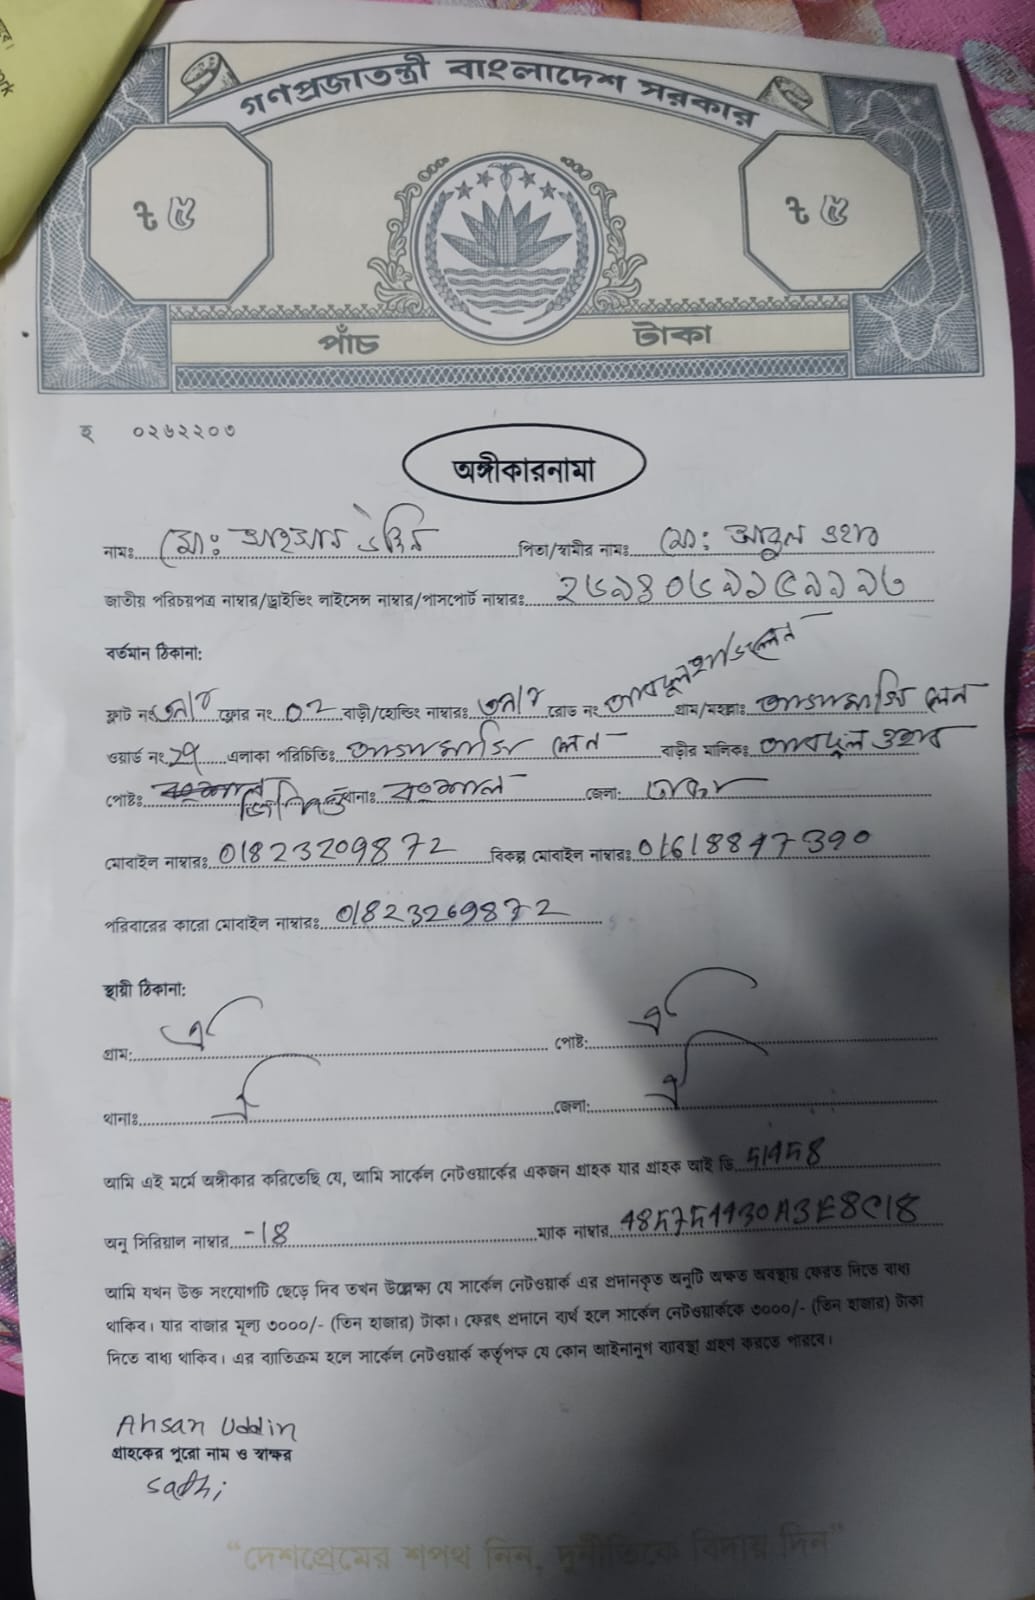 গণপ্রজাতন্ত্রী বাংলাদেশ সরকার
৳ ৫ ৳ ৫
পাঁচ টাকা
হ ০২৬২২০৩
অঙ্গীকারনামা
নামঃ মোঃ আহসান উদ্দিন পিতা/স্বামীর নামঃ মোঃ আবুল ওহাব
জাতীয় পরিচয়পত্র নাম্বার/ড্রাইভিং লাইসেন্স নাম্বার/পাসপোর্ট নাম্বারঃ
বর্তমান ঠিকানা:
ফ্লাট নং ফ্লোর নং ০২ বাড়ী/হোল্ডিং নাম্বারঃ রোড নং গ্রাম/মহল্লাঃ লেন
ওয়ার্ড নং এলাকা পরিচিতিঃ লেন বাড়ীর মালিকঃ আবদুল ওহাব
পোষ্টঃ থানাঃ বংশাল জেলা: ঢাকা
মোবাইল নাম্বারঃ 01823209872 বিকল্প মোবাইল নাম্বারঃ
পরিবারের কারো মোবাইল নাম্বারঃ 01823269872
স্থায়ী ঠিকানা:
গ্রাম: ঐ পোষ্ট: ঐ
থানাঃ ঐ জেলা: ঐ
আমি এই মর্মে অঙ্গীকার করিতেছি যে, আমি সার্কেল নেটওয়ার্কের একজন গ্রাহক যার গ্রাহক আই ডি
অনু সিরিয়াল নাম্বার -18 ম্যাক নাম্বার
আমি যখন উক্ত সংযোগটি ছেড়ে দিব তখন উল্লেক্ষ্য যে সার্কেল নেটওয়ার্ক এর প্রদানকৃত অনুটি অক্ষত অবস্থায় ফেরত দিতে বাধ্য
থাকিব। যার বাজার মূল্য ৩০০০/- (তিন হাজার) টাকা। ফেরৎ প্রদানে ব্যর্থ হলে সার্কেল নেটওয়ার্ককে ৩০০০/- (তিন হাজার) টাকা
দিতে বাধ্য থাকিব। এর ব্যাতিক্রম হলে সার্কেল নেটওয়ার্ক কর্তৃপক্ষ যে কোন আইনানুগ ব্যাবস্থা গ্রহণ করতে পারবে।
Ahsan Uddin
গ্রাহকের পুরো নাম ও স্বাক্ষর
sathi
"দেশপ্রেমের শপথ নিন, দুর্নীতিকে বিদায় দিন"